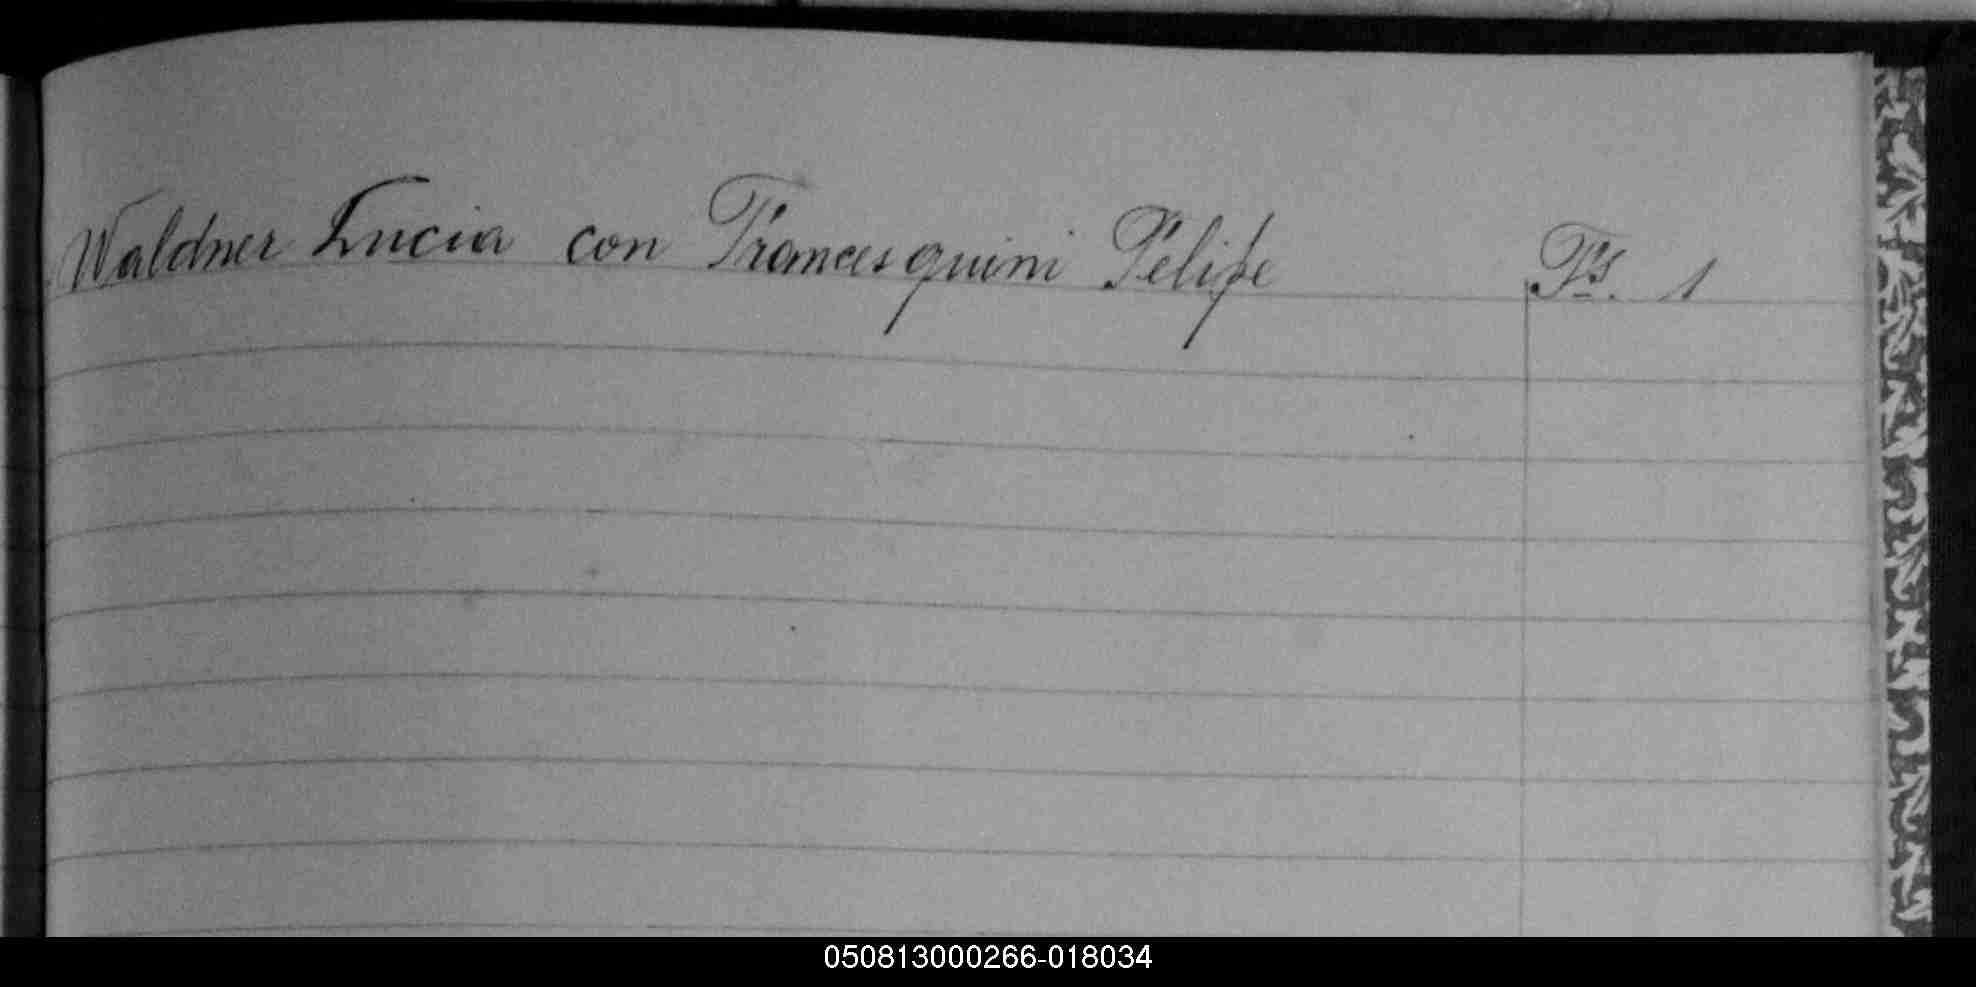 Waldner Lucia con Francesquini Felipe Fs. 1
050813000266-018034